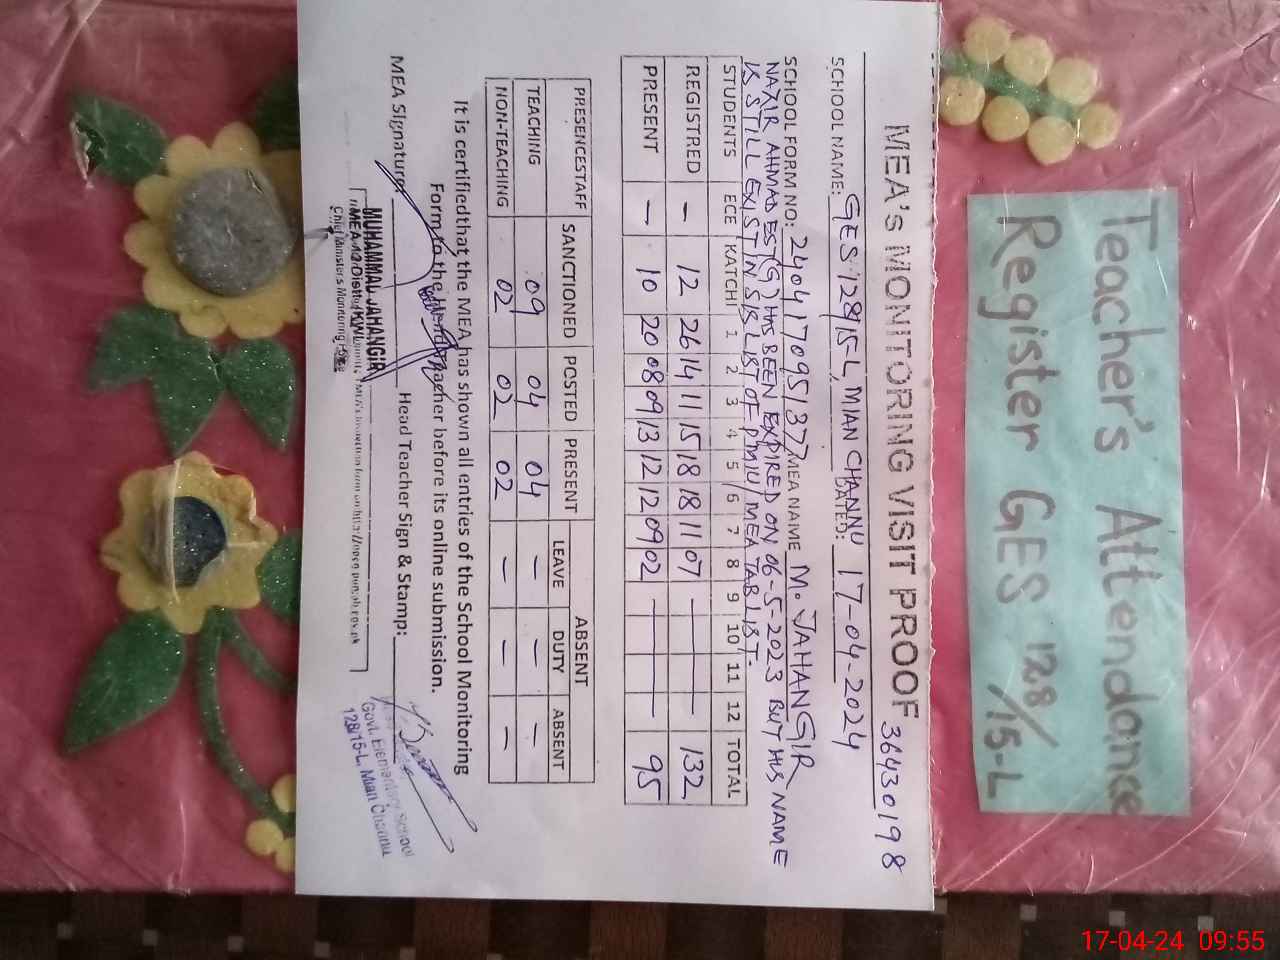 Teacher's Attendance
Register GES 128/15-L
MEA's MONITORING VISIT PROOF
36430198
SCHOOL NAME: GES 128/15-L, MIAN CHANNU DATED: 17-04-2024
SCHOOL FORM NO: 2404170951377 MEA NAME M. JAHANGIR
NAZIR AHMAD EST(G) HAS BEEN EXPIRED ON 06-5-2023 BUT HIS NAME
IS STILL EXIST IN SIS LIST OF PMIU/MEA TAB LIST.
STUDENTS ECE KATCHI 1 2 3 4 5 6 7 8 9 10 11 12 TOTAL
REGISTRED — 12 26 14 11 15 18 18 11 07 — — — — 132
PRESENT — 10 20 08 09 13 12 12 09 02 — — — — 95
PRESENCESTAFF SANCTIONED POSTED PRESENT ABSENT
LEAVE DUTY ABSENT
TEACHING 09 04 04 — — —
NON-TEACHING 02 02 02 — — —
It is certifiedthat the MEA has shown all entries of the School Monitoring
Form to the Head Teacher before its online submission.
MEA Signature Head Teacher Sign & Stamp:
MUHAMMAD JAHANGIR
Chief Minister's Monitoring Force
Govt. Elementary School
128/15-L, Mian Channu
17-04-24 09:55